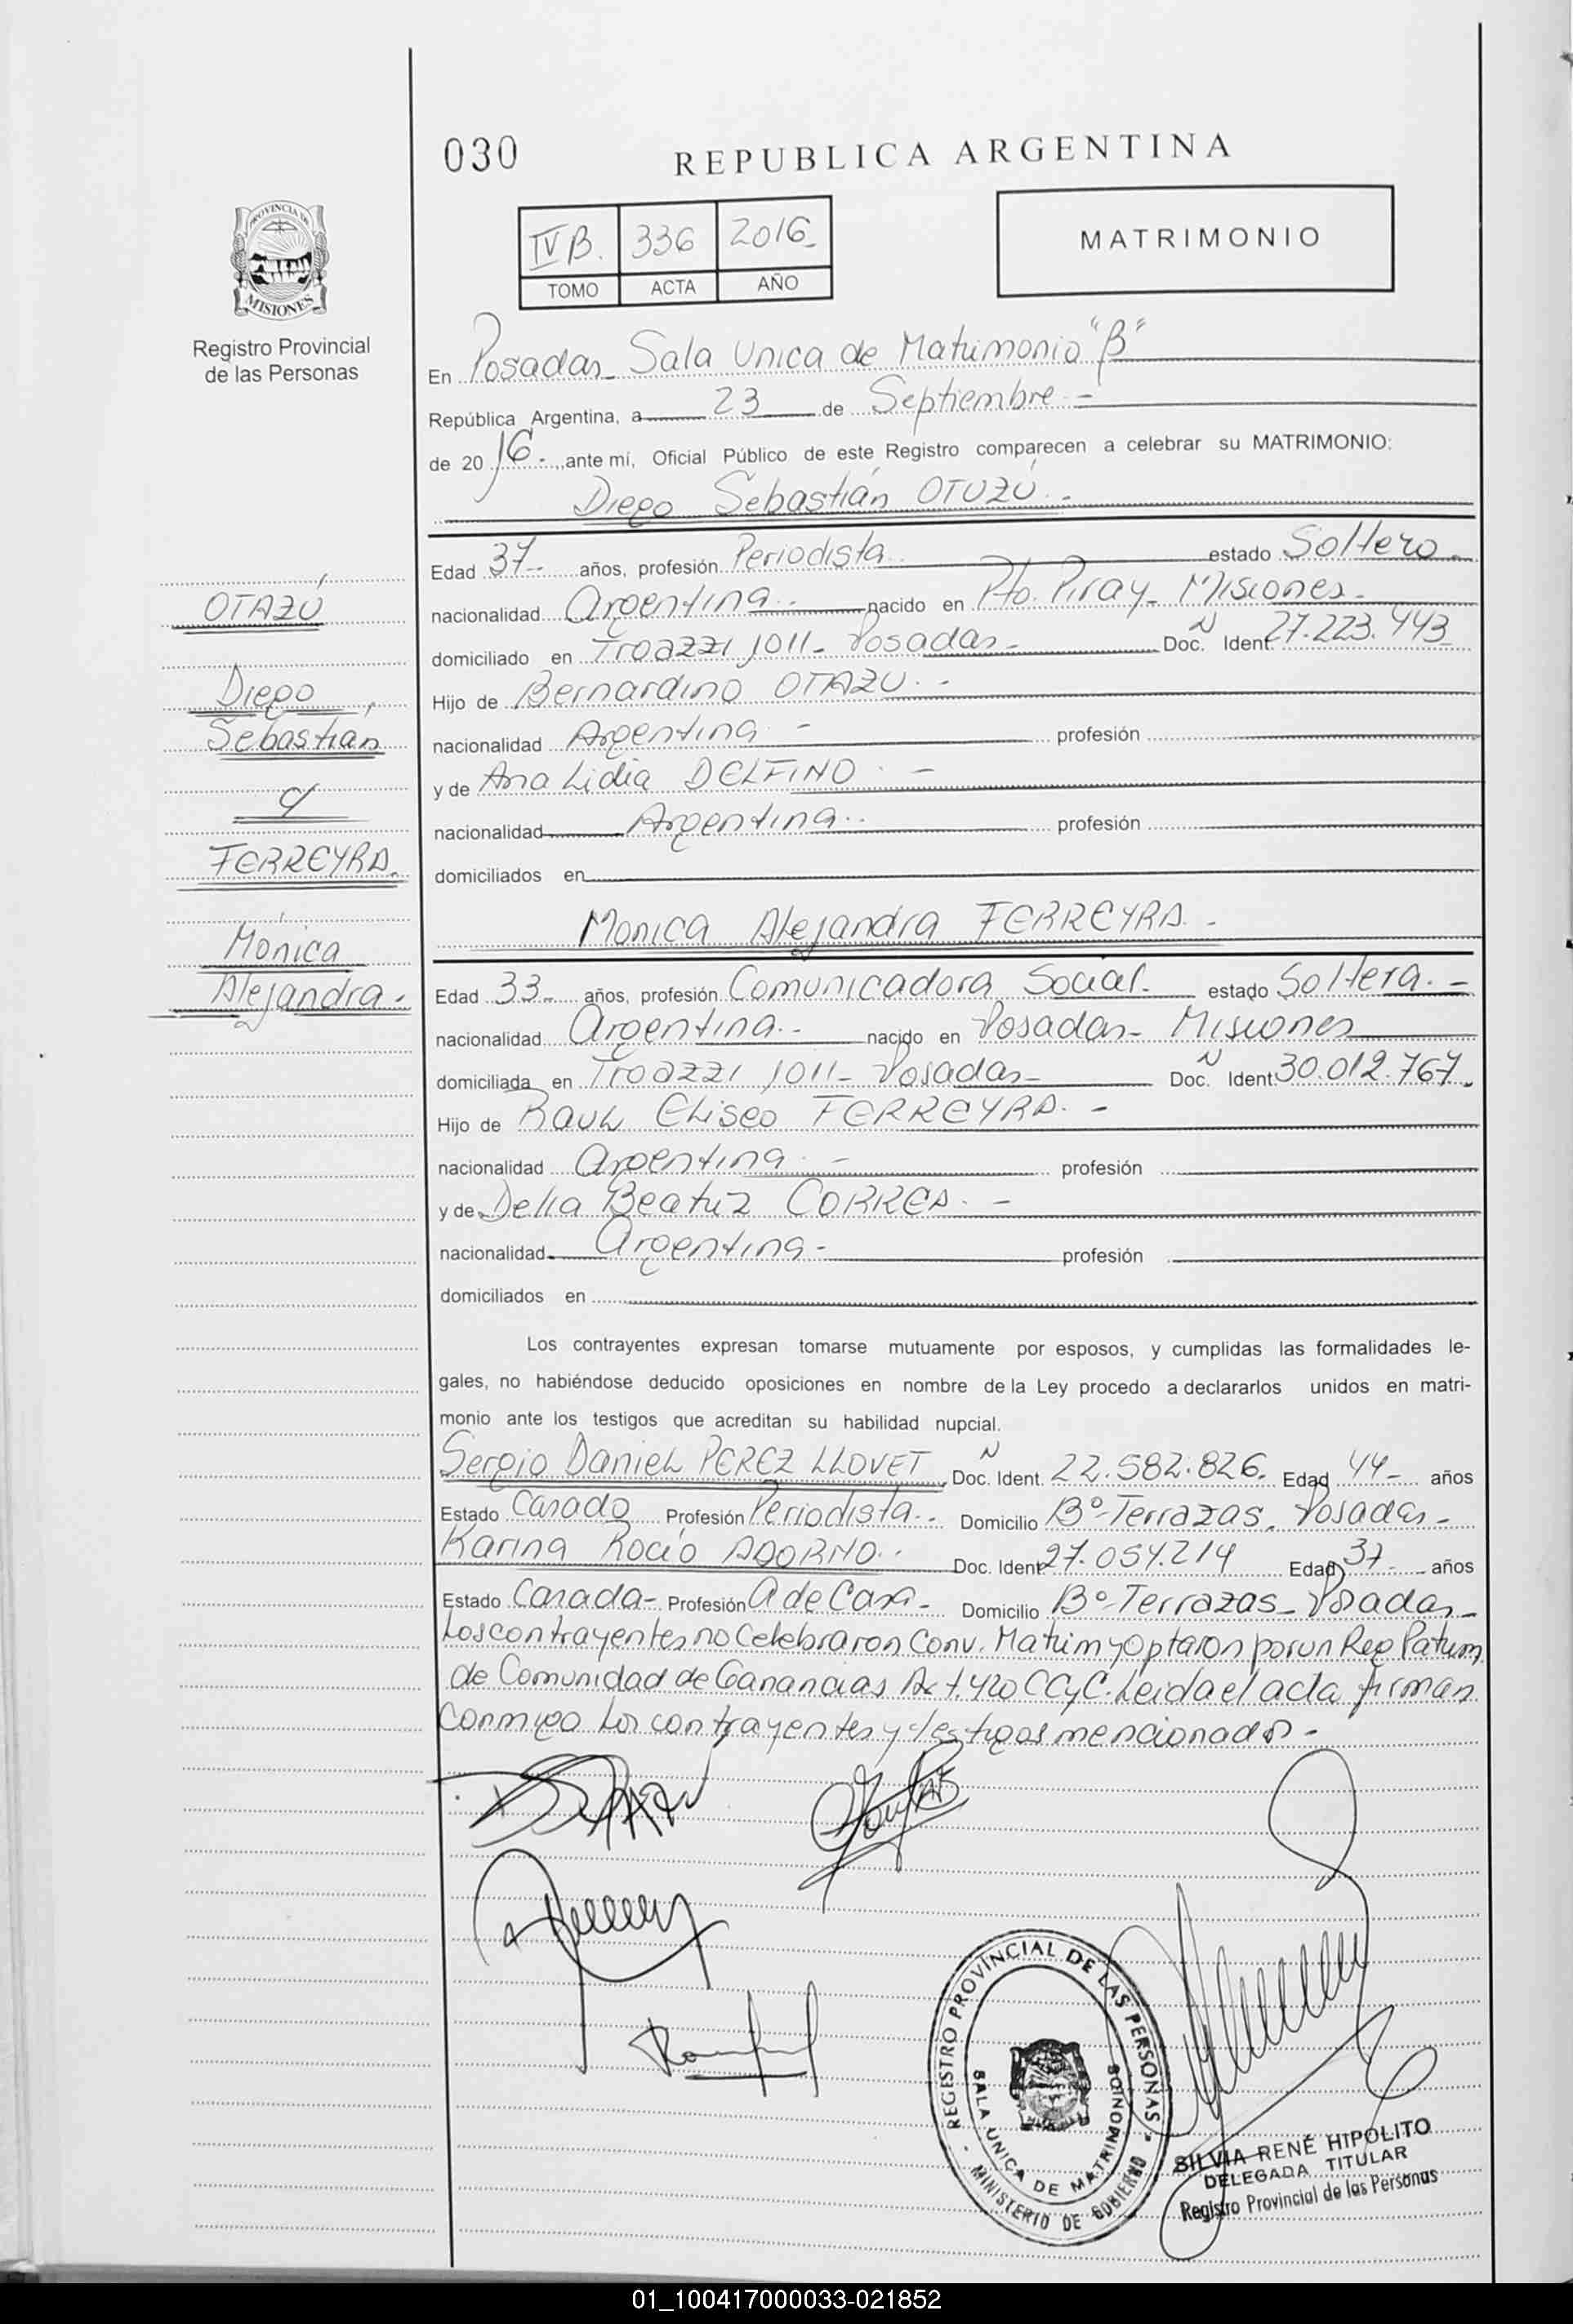 030
REPUBLICA ARGENTINA
PROVINCIA DE
MISIONES
Registro Provincial
de las Personas
IV B. 336 2016
TOMO ACTA AÑO
MATRIMONIO
En Posadas - Sala Unica de Matrimonio "B"
República Argentina, a 23 de Septiembre -
de 20 16 - ,ante mí, Oficial Público de este Registro comparecen a celebrar su MATRIMONIO:
Diego Sebastián OTUZÚ. -
Edad 37 - años, profesión Periodista estado Soltero -
nacionalidad Argentina - nacido en Pto. Piray - Misiones -
domiciliado en Troazzi 1011 - Posadas - Doc. N Ident. 27.223.443
Hijo de Bernardino OTAZU. -
nacionalidad Argentina - profesión
y de Ana Lidia DELFINO. -
nacionalidad Argentina.. profesión
domiciliados en
OTAZÚ
Diego
Sebastián
c/
FERREYRA.
Mónica
Alejandra -
Mónica Alejandra FERREYRA. -
Edad 33 - años, profesión Comunicadora Social - estado Soltera. -
nacionalidad Argentina - nacido en Posadas - Misiones
domiciliada en Troazzi 1011 - Posadas - Doc. N Ident. 30.012.767 -
Hijo de Raul Eliseo FERREYRA. -
nacionalidad Argentina. - profesión
y de Delia Beatriz CORREA. -
nacionalidad Argentina - profesión
domiciliados en
Los contrayentes expresan tomarse mutuamente por esposos, y cumplidas las formalidades le-
gales, no habiéndose deducido oposiciones en nombre de la Ley procedo a declararlos unidos en matri-
monio ante los testigos que acreditan su habilidad nupcial.
Sergio Daniel PEREZ LLOVET Doc. N Ident. 22.582.826. Edad 44 - años
Estado Casado Profesión Periodista - Domicilio Bº Terrazas. Posadas -
Karina Rocío ADORNO.. Doc. Ident 27.054.214 Edad 37 - años
Estado Casada - Profesión A de Casa - Domicilio Bº Terrazas - Posadas -
Los contrayentes no Celebraron Conv. Matrim y Optaron por un Reg Patrim
de Comunidad de Ganancias Art. 420 CCyC. Leida el acta firman
Conmigo Los contrayentes y testigos mencionados -
REGISTRO PROVINCIAL DE LAS PERSONAS
SALA UNICA DE MATRIMONIOS
- MINISTERIO DE GOBIERNO -
SILVIA RENÉ HIPOLITO
DELEGADA TITULAR
Registro Provincial de las Personas
01_100417000033-021852